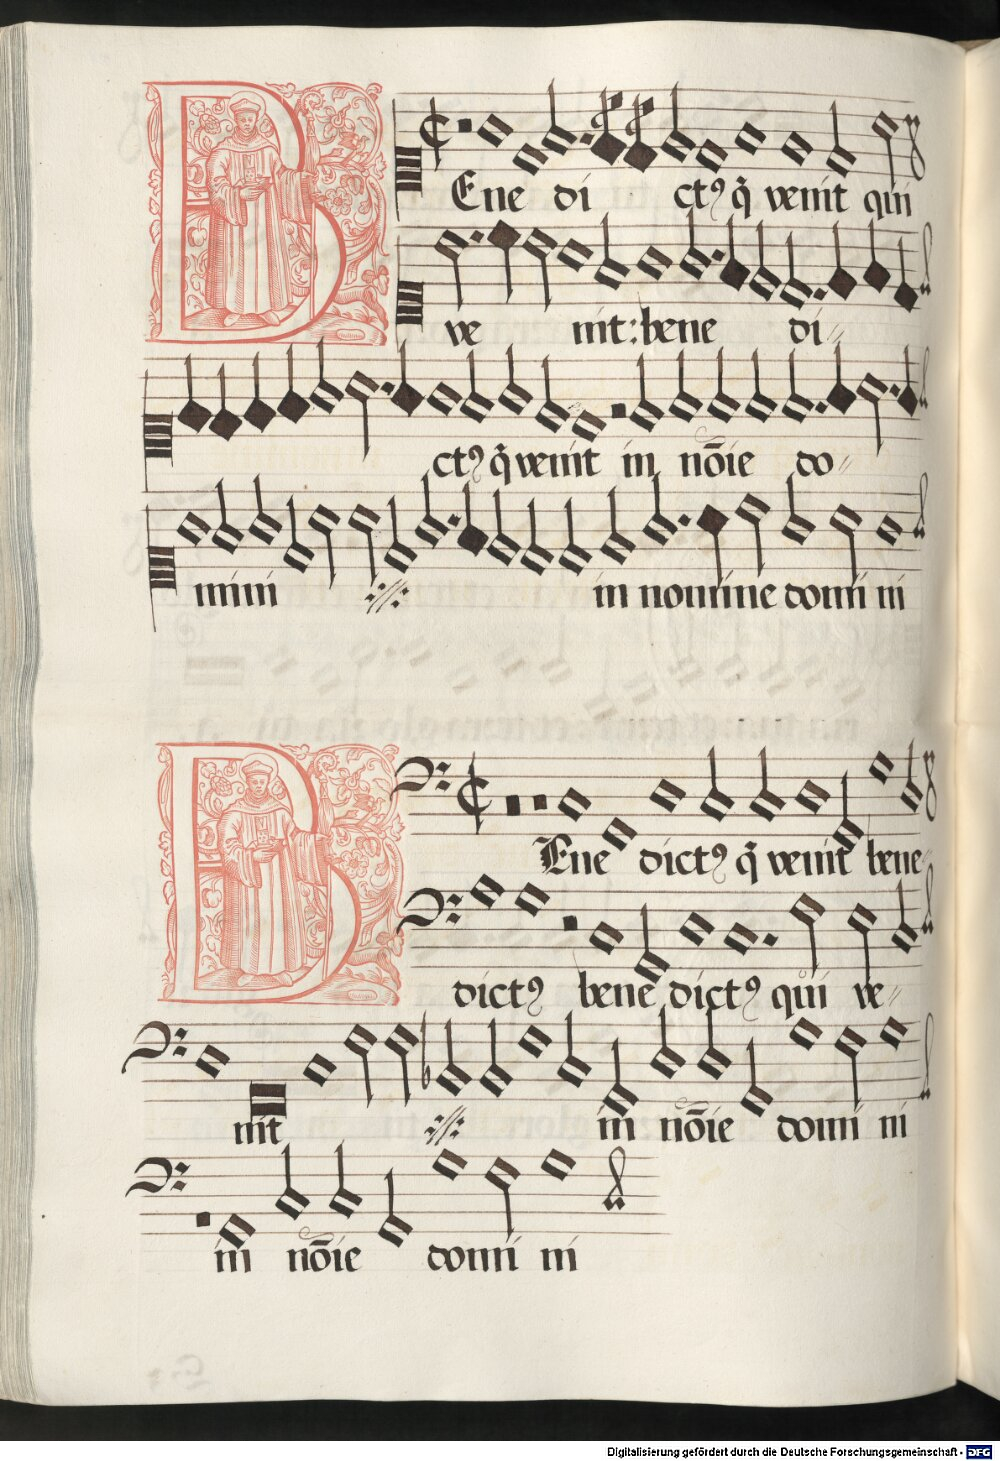 BEne di ctꝰ q̃ venit qui
ve nit: bene di⸗
ctꝰ q̃ venit in nōie do⸗
mini ·//· in nomine domi ni
BEne dictꝰ q̃ venit bene⸗
dictꝰ bene dictꝰ qui ve⸗
nit ·//· in nōie domi ni
in nōie domi ni
Digitalisierung gefördert durch die Deutsche Forschungsgemeinschaft - DFG